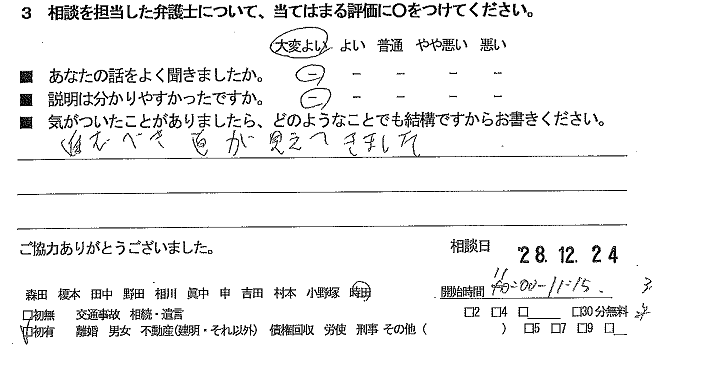 3 相談を担当した弁護士について、当てはまる評価に〇をつけてください。
大変よい よい 普通 やや悪い 悪い
■ あなたの話をよく聞きましたか。 － － － － －
■ 説明は分かりやすかったですか。 － － － － －
■ 気がついたことがありましたら、どのようなことでも結構ですからお書きください。
進むべき道が見えてきました
ご協力ありがとうございました。
相談日 '28.12.24
森田 榎本 田中 野田 相川 眞中 申 吉田 村本 小野塚 時田
開始時間 11:00-11:15.
□初無 交通事故 相続・遺言
□2 □4 □____ □30分無料
□初有 離婚 男女 不動産(建明・それ以外) 債権回収 労使 刑事 その他 ( )
□5 □7 □9 □__